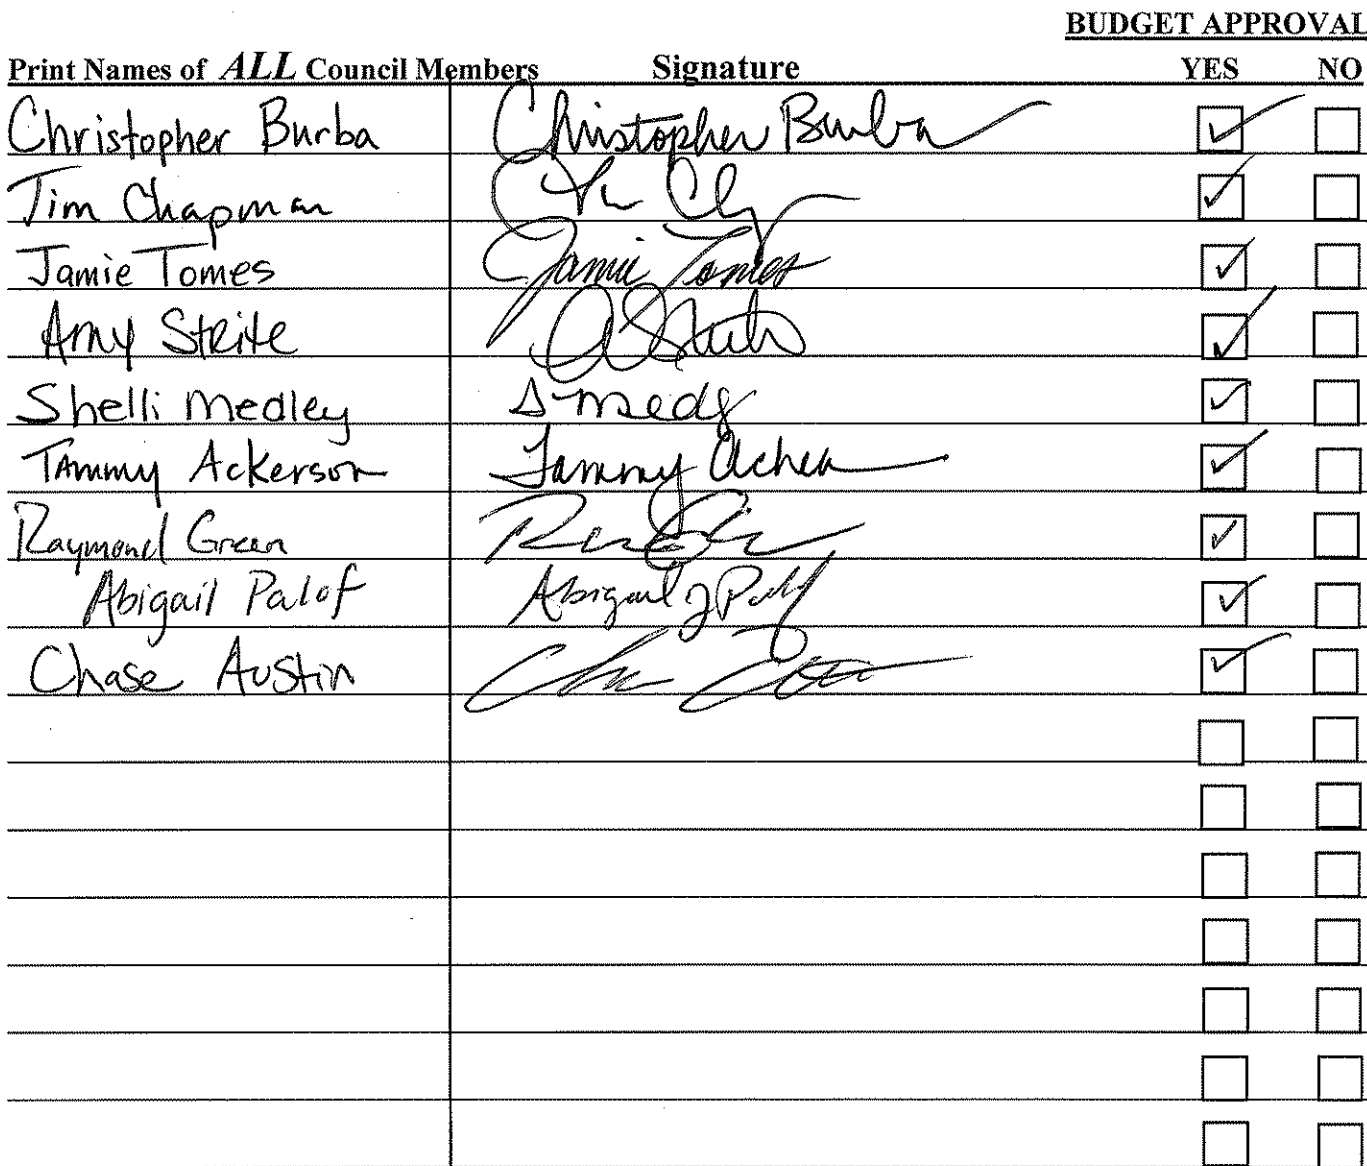 BUDGET APPROVAL
Print Names of ALL Council Members Signature YES NO
Christopher Burba Christopher Burba
Tim Chapman
Jamie Tomes Jamie Tomes
Amy Strite
Shelli Medley
Tammy Ackerson Tammy
Raymond Green
Abigail Palof Abigail J
Chase Austin